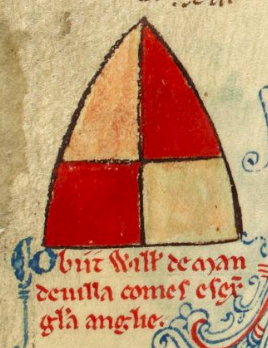 Obiit Will' de Man
deuilla comes esex
gl'a anglie.